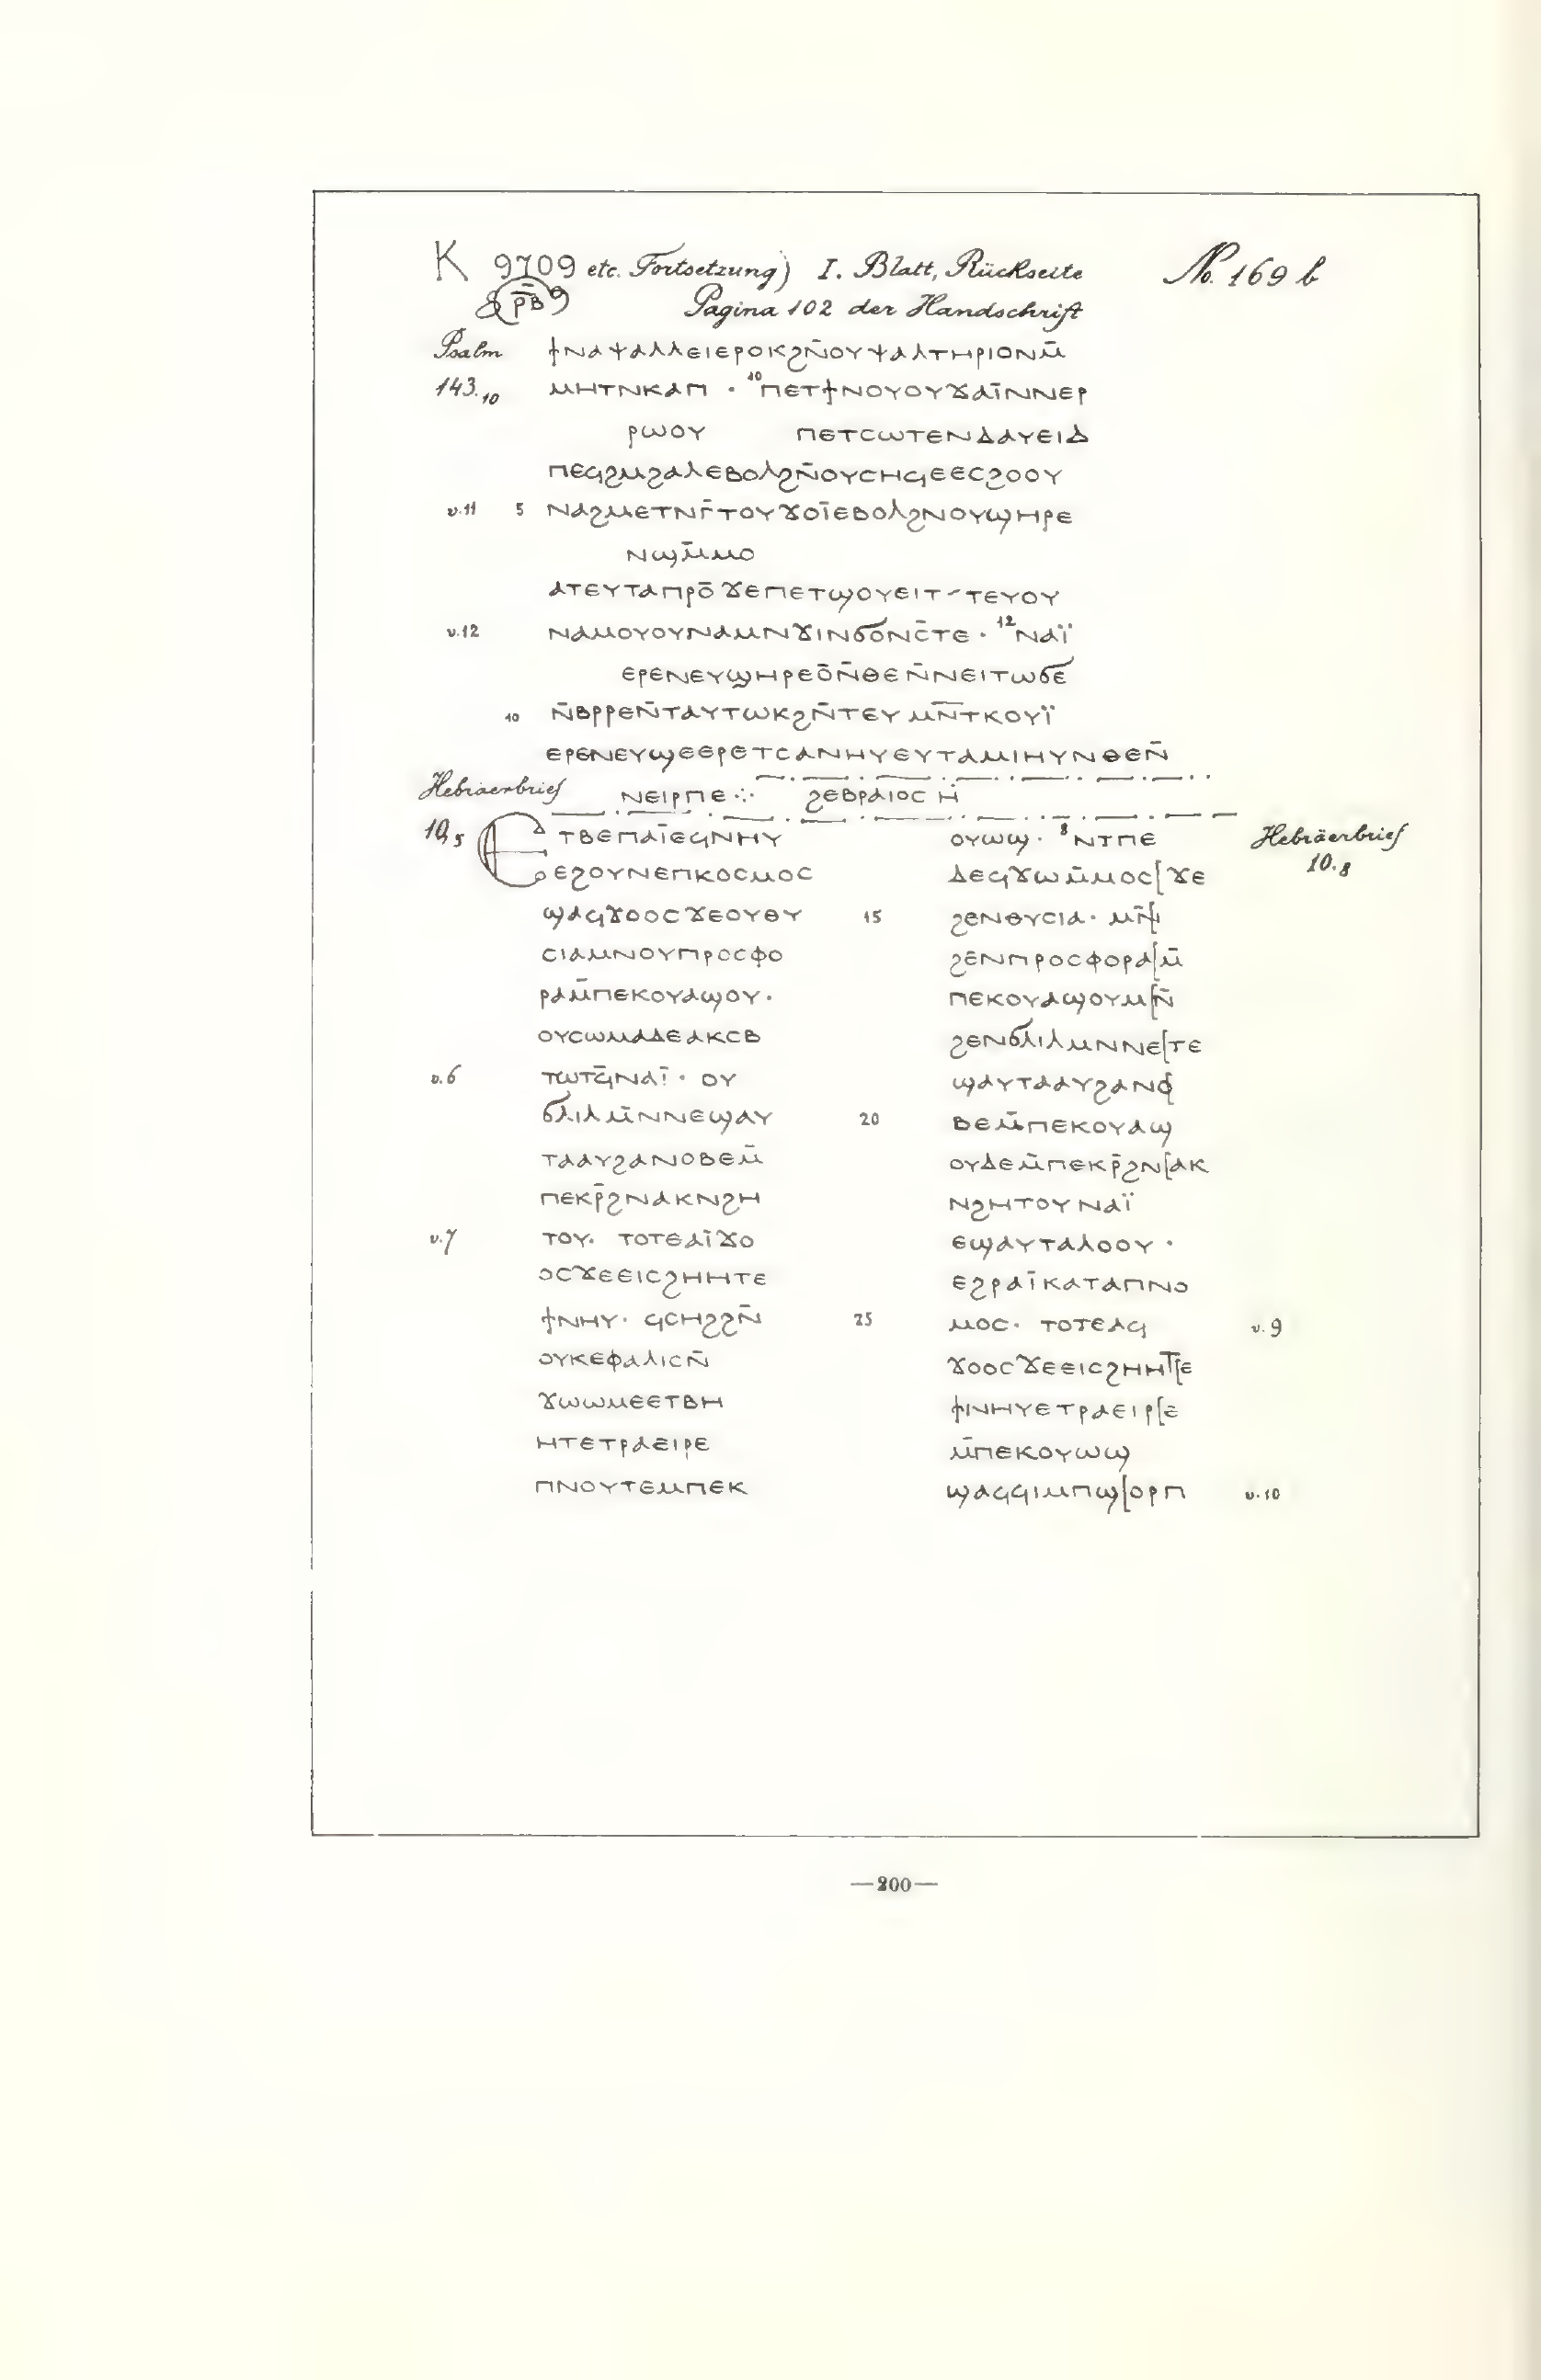 K 9709 etc. Fortsetzung) I. Blatt, Rückseite No. 169 b
ⲣ̅ⲃ̅ Pagina 102 der Handschrift
Psalm ϯⲛⲁⲯⲁⲗⲗⲉⲓⲉⲣⲟⲕϩⲛ̄ⲟⲩⲯⲁⲗⲧⲏⲣⲓⲟⲛⲙ̄
143.10 ⲙⲏⲧⲛⲕⲁⲡ · 10 ⲡⲉⲧϯⲛⲟⲩⲟⲩϫⲁⲓ̈ⲛⲛⲉⲣ
ⲣⲱⲟⲩ ⲡⲉⲧⲥⲱⲧⲉⲛⲇⲁⲩⲉⲓⲇ
ⲡⲉϥϩⲙϩⲁⲗⲉⲃⲟⲗϩⲛ̄ⲟⲩⲥⲏϥⲉⲉⲥϩⲟⲟⲩ
v.11 5 ⲛⲁϩⲙⲉⲧⲛⲅ̄ⲧⲟⲩϫⲟⲓ̈ⲉⲃⲟⲗϩⲛⲟⲩϣⲏⲣⲉ
ⲛϣⲙ̄ⲙⲟ
ⲁⲧⲉⲩⲧⲁⲡⲣⲟ̄ϫⲉⲡⲉⲧϣⲟⲩⲉⲓⲧ-ⲧⲉⲩⲟⲩ
v.12 ⲛⲁⲙⲟⲩⲟⲩⲛⲁⲙⲛϫⲓⲛϭⲟⲛⲥ̄ⲧⲉ · 12 ⲛⲁⲓ̈
ⲉⲣⲉⲛⲉⲩϣⲏⲣⲉⲟ̄ⲛ̄ⲑⲉⲛ̄ⲛⲉⲓⲧⲱϭⲉ
10 ⲛ̄ⲃⲣⲣⲉⲛ̄ⲧⲁⲩⲧⲱⲕϩⲛ̄ⲧⲉⲩⲙⲛ̄ⲧⲕⲟⲩⲓ̈
ⲉⲣⲉⲛⲉⲩϣⲉⲉⲣⲉⲧⲥⲁⲛⲏⲩⲉⲩⲧⲁⲙⲓⲏⲩⲛⲑⲉⲛ̄
Hebräerbrief ⲛⲉⲓⲣⲡⲉ ⁘ ϩⲉⲃⲣⲁⲓⲟⲥ ⲏ̄
10,5 ⲉⲧⲃⲉⲡⲁⲓ̈ⲉϥⲛⲏⲩ
ⲉϩⲟⲩⲛⲉⲡⲕⲟⲥⲙⲟⲥ
ϣⲁϥϫⲟⲟⲥϫⲉⲟⲩⲑⲩ
ⲥⲓⲁⲙⲛⲟⲩⲡⲣⲟⲥⲫⲟ
ⲣⲁⲙ̄ⲡⲉⲕⲟⲩⲁϣⲟⲩ ·
ⲟⲩⲥⲱⲙⲁⲇⲉⲁⲕⲥⲃ
v.6 ⲧⲱⲧϥ̄ⲛⲁⲓ̈ · ⲟⲩ
ϭⲗⲓⲗⲙ̄ⲛⲛⲉϣⲁⲩ
ⲧⲁⲁⲩϩⲁⲛⲟⲃⲉⲙ̄
ⲡⲉⲕⲣ̄ϩⲛⲁⲕⲛϩⲏ
v.7 ⲧⲟⲩ · ⲧⲟⲧⲉⲁⲓ̈ϫⲟ
ⲟⲥϫⲉⲉⲓⲥϩⲏⲏⲧⲉ
ϯⲛⲏⲩ · ϥⲥⲏϩϩⲛ̄
ⲟⲩⲕⲉⲫⲁⲗⲓⲥⲛ̄
ϫⲱⲱⲙⲉⲉⲧⲃⲏ
ⲏⲧⲉⲧⲣⲁⲉⲓⲣⲉ
ⲡⲛⲟⲩⲧⲉⲙⲡⲉⲕ
ⲟⲩⲱϣ · 8 ⲛⲧⲡⲉ Hebräerbrief
ⲇⲉϥϫⲱⲙ̄ⲙⲟⲥ[ϫⲉ 10.8
15 ϩⲉⲛⲑⲩⲥⲓⲁ · ⲙⲛ̄
ϩⲉⲛⲡⲣⲟⲥⲫⲟⲣⲁ[ⲙ̄
ⲡⲉⲕⲟⲩⲁϣⲟⲩⲙ[ⲛ̄
ϩⲉⲛϭⲗⲓⲗⲙⲛⲛⲉ[ⲧⲉ
ϣⲁⲩⲧⲁⲁⲩϩⲁⲛⲟ
20 ⲃⲉⲙ̄ⲡⲉⲕⲟⲩⲁϣ
ⲟⲩⲇⲉⲙ̄ⲡⲉⲕⲣ̄ϩⲛ[ⲁⲕ
ⲛϩⲏⲧⲟⲩⲛⲁⲓ̈
ⲉϣⲁⲩⲧⲁⲗⲟⲟⲩ ·
ⲉϩⲣⲁⲓ̈ⲕⲁⲧⲁⲡⲛⲟ
25 ⲙⲟⲥ · ⲧⲟⲧⲉⲁϥ v.9
ϫⲟⲟⲥϫⲉⲉⲓⲥϩⲏⲏⲧ[ⲉ
ϯⲛⲏⲩⲉⲧⲣⲁⲉⲓⲣ[ⲉ
ⲙ̄ⲡⲉⲕⲟⲩⲱϣ
ϣⲁϥϥⲓⲙⲡϣ[ⲟⲣⲡ v.10
—200—